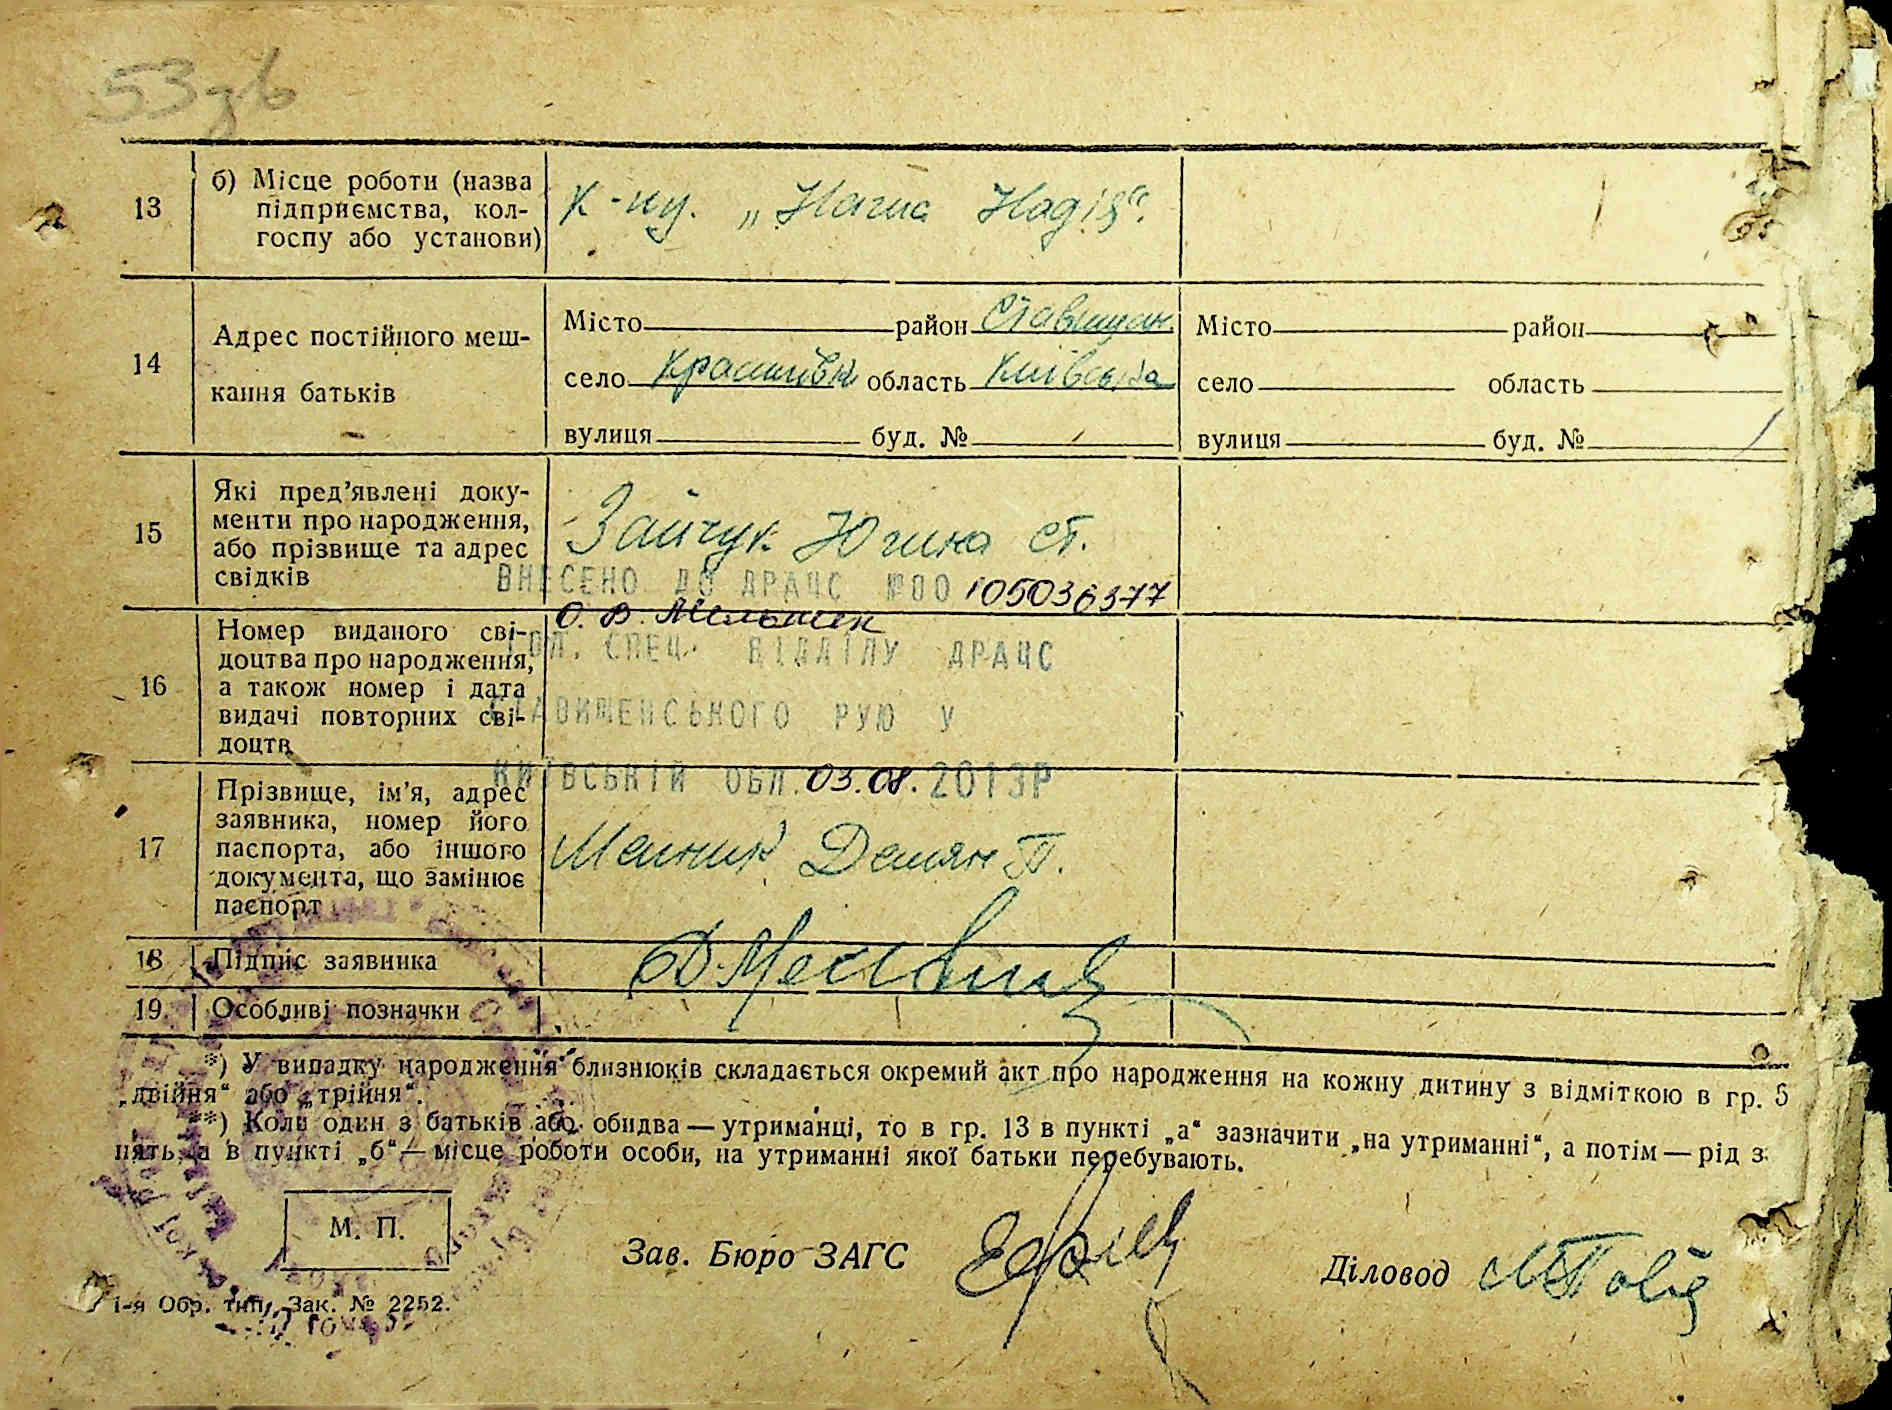 53зв
13
б) Місце роботи (назва
підприємства, кол-
госпу або установи)
К-пу. „Наша Надія“.
14
Адрес постійного меш-
кання батьків
Місто район Ставищан
село область Київська
вулиця буд. №
Місто район
село область
вулиця буд. №
15
Які пред’явлені доку-
менти про народження,
або прізвище та адрес
свідків
Зайчук Югина Ст.
ВНЕСЕНО ДО ДРАЦС №00105036377
О. В. Мельник
16
Номер виданого сві-
доцтва про народження,
а також номер і дата
видачі повторних сві-
доцтв
ГОЛ. СПЕЦ. ВІДДІЛУ ДРАЦС
СТАВИЩЕНСЬКОГО РУЮ У
КИЇВСЬКІЙ ОБЛ. 03.08.2013Р
17
Прізвище, ім’я, адрес
заявника, номер його
паспорта, або іншого
документа, що замінює
паспорт
Мелник Демян П.
18
Підпис заявника
19.
Особливі позначки
*) У випадку народження близнюків складається окремий акт про народження на кожну дитину з відміткою в гр. 5
„двійня“ або „трійня“.
**) Коли один з батьків або обидва — утриманці, то в гр. 13 в пункті „а“ зазначити „на утриманні“, а потім — рід з
нять, а в пункті „б“ — місце роботи особи, на утриманні якої батьки перебувають.
М. П.
Зав. Бюро ЗАГС
Діловод
1-я Обр. тип. Зак. № 2252.